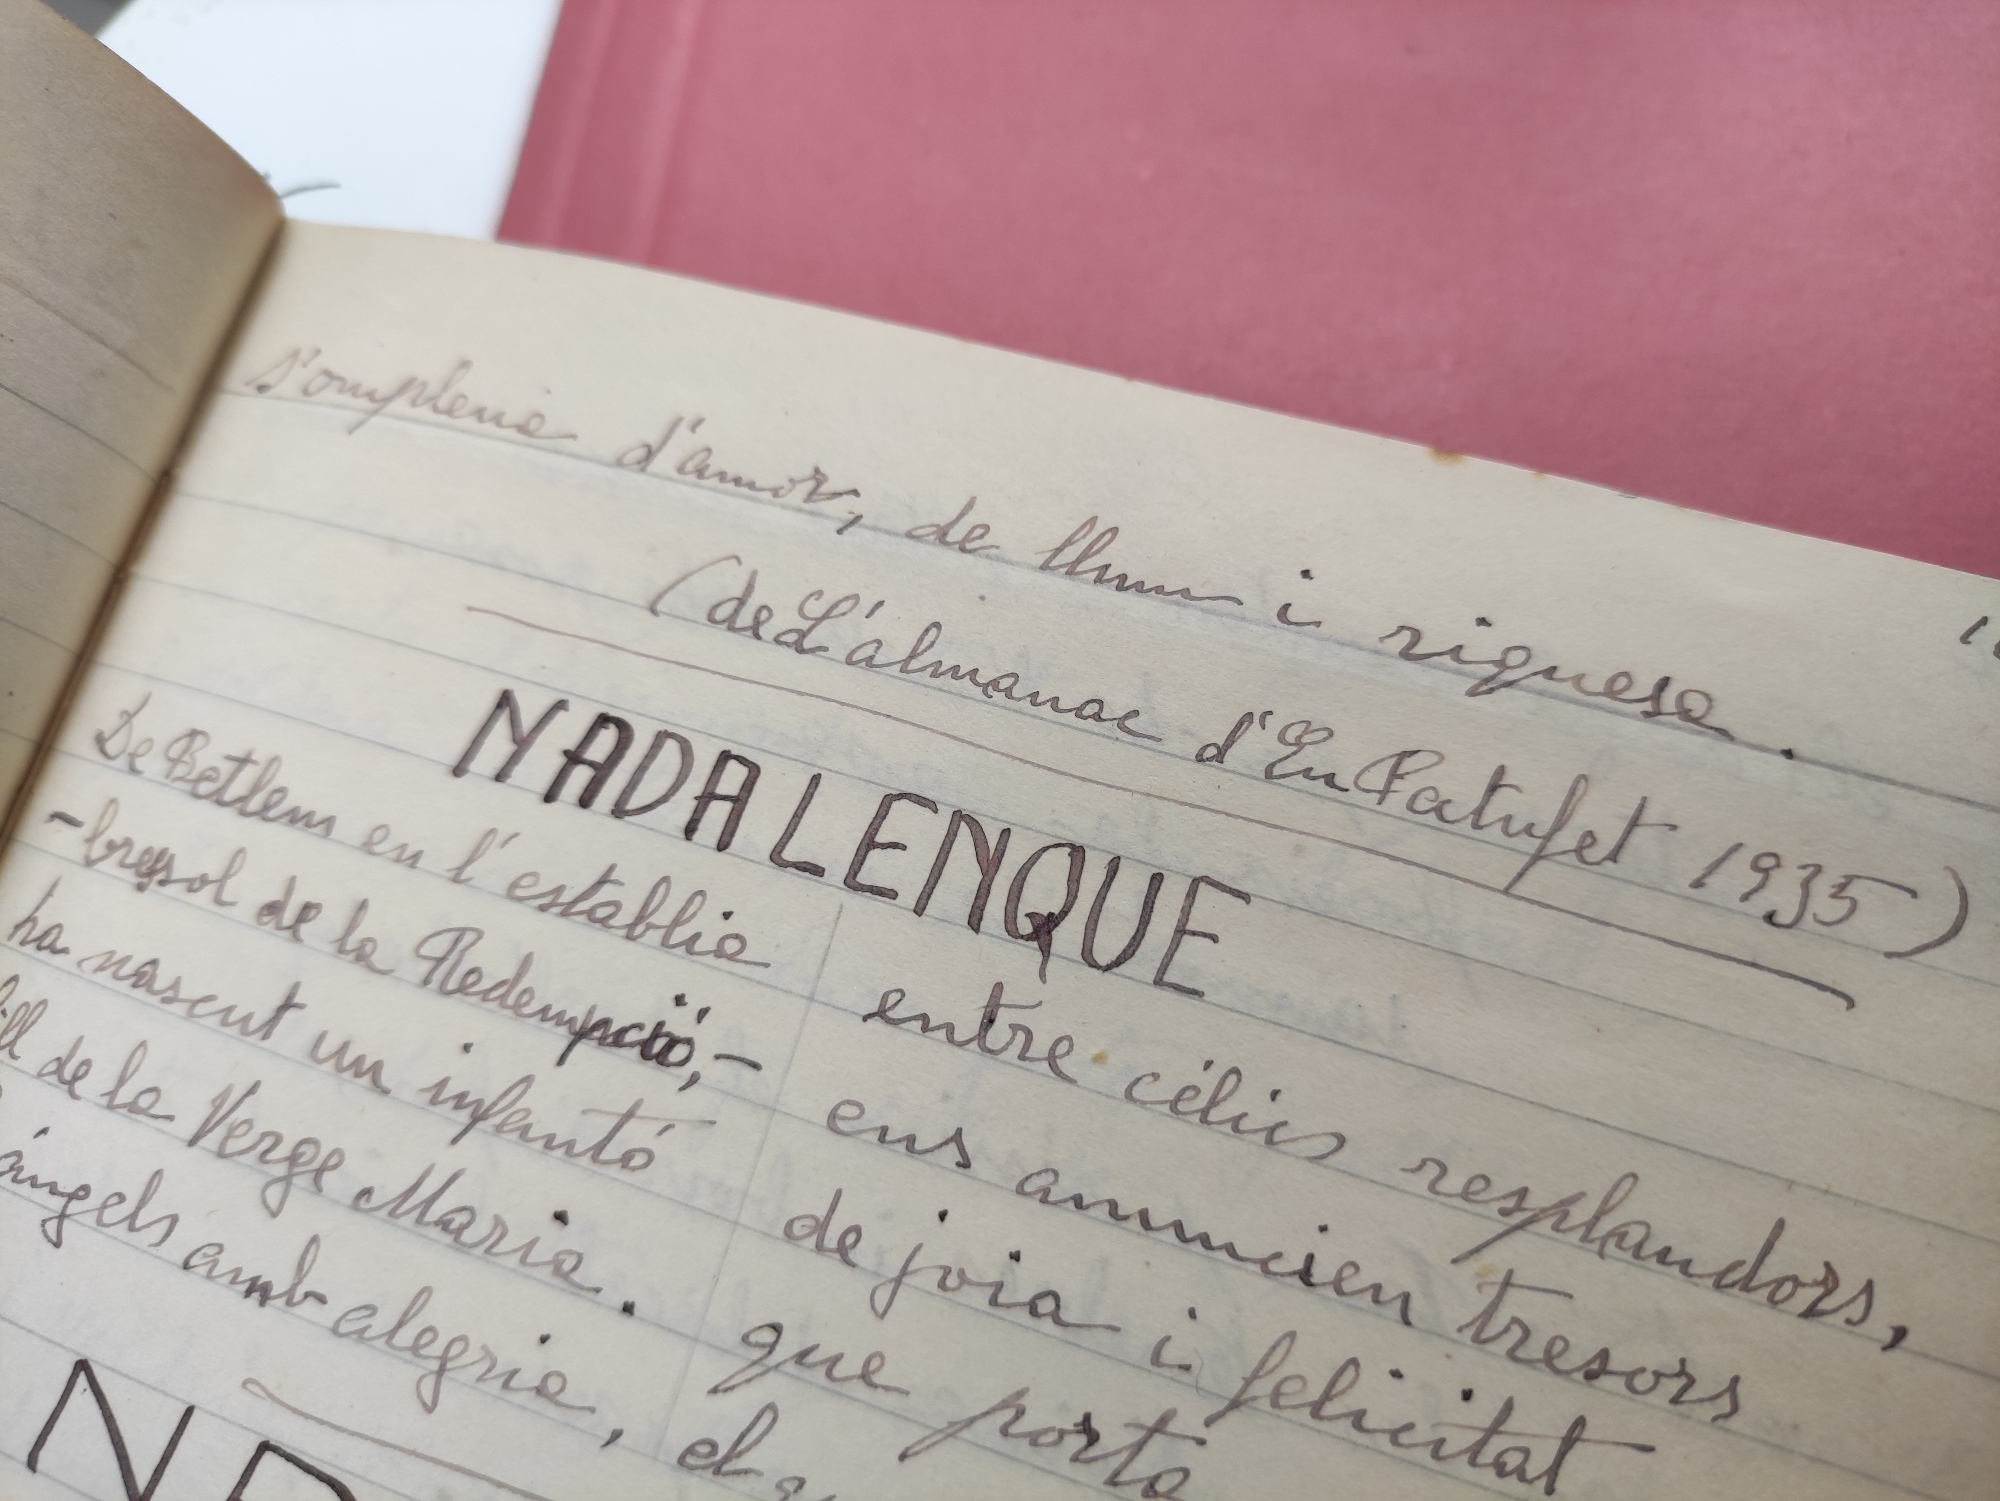 s'omplena d'amor, de llum i riquesa.
(de L'almanac d'En Patufet 1935)
NADALENQUE
De Betlem en l'establia
-bressol de la Redempció,-
ha nascut un infantó
fill de la Verge Maria.
àngels amb alegria,
entre cèlics resplandors,
ens anuncien tresors
de joia i felicitat
que porta
el